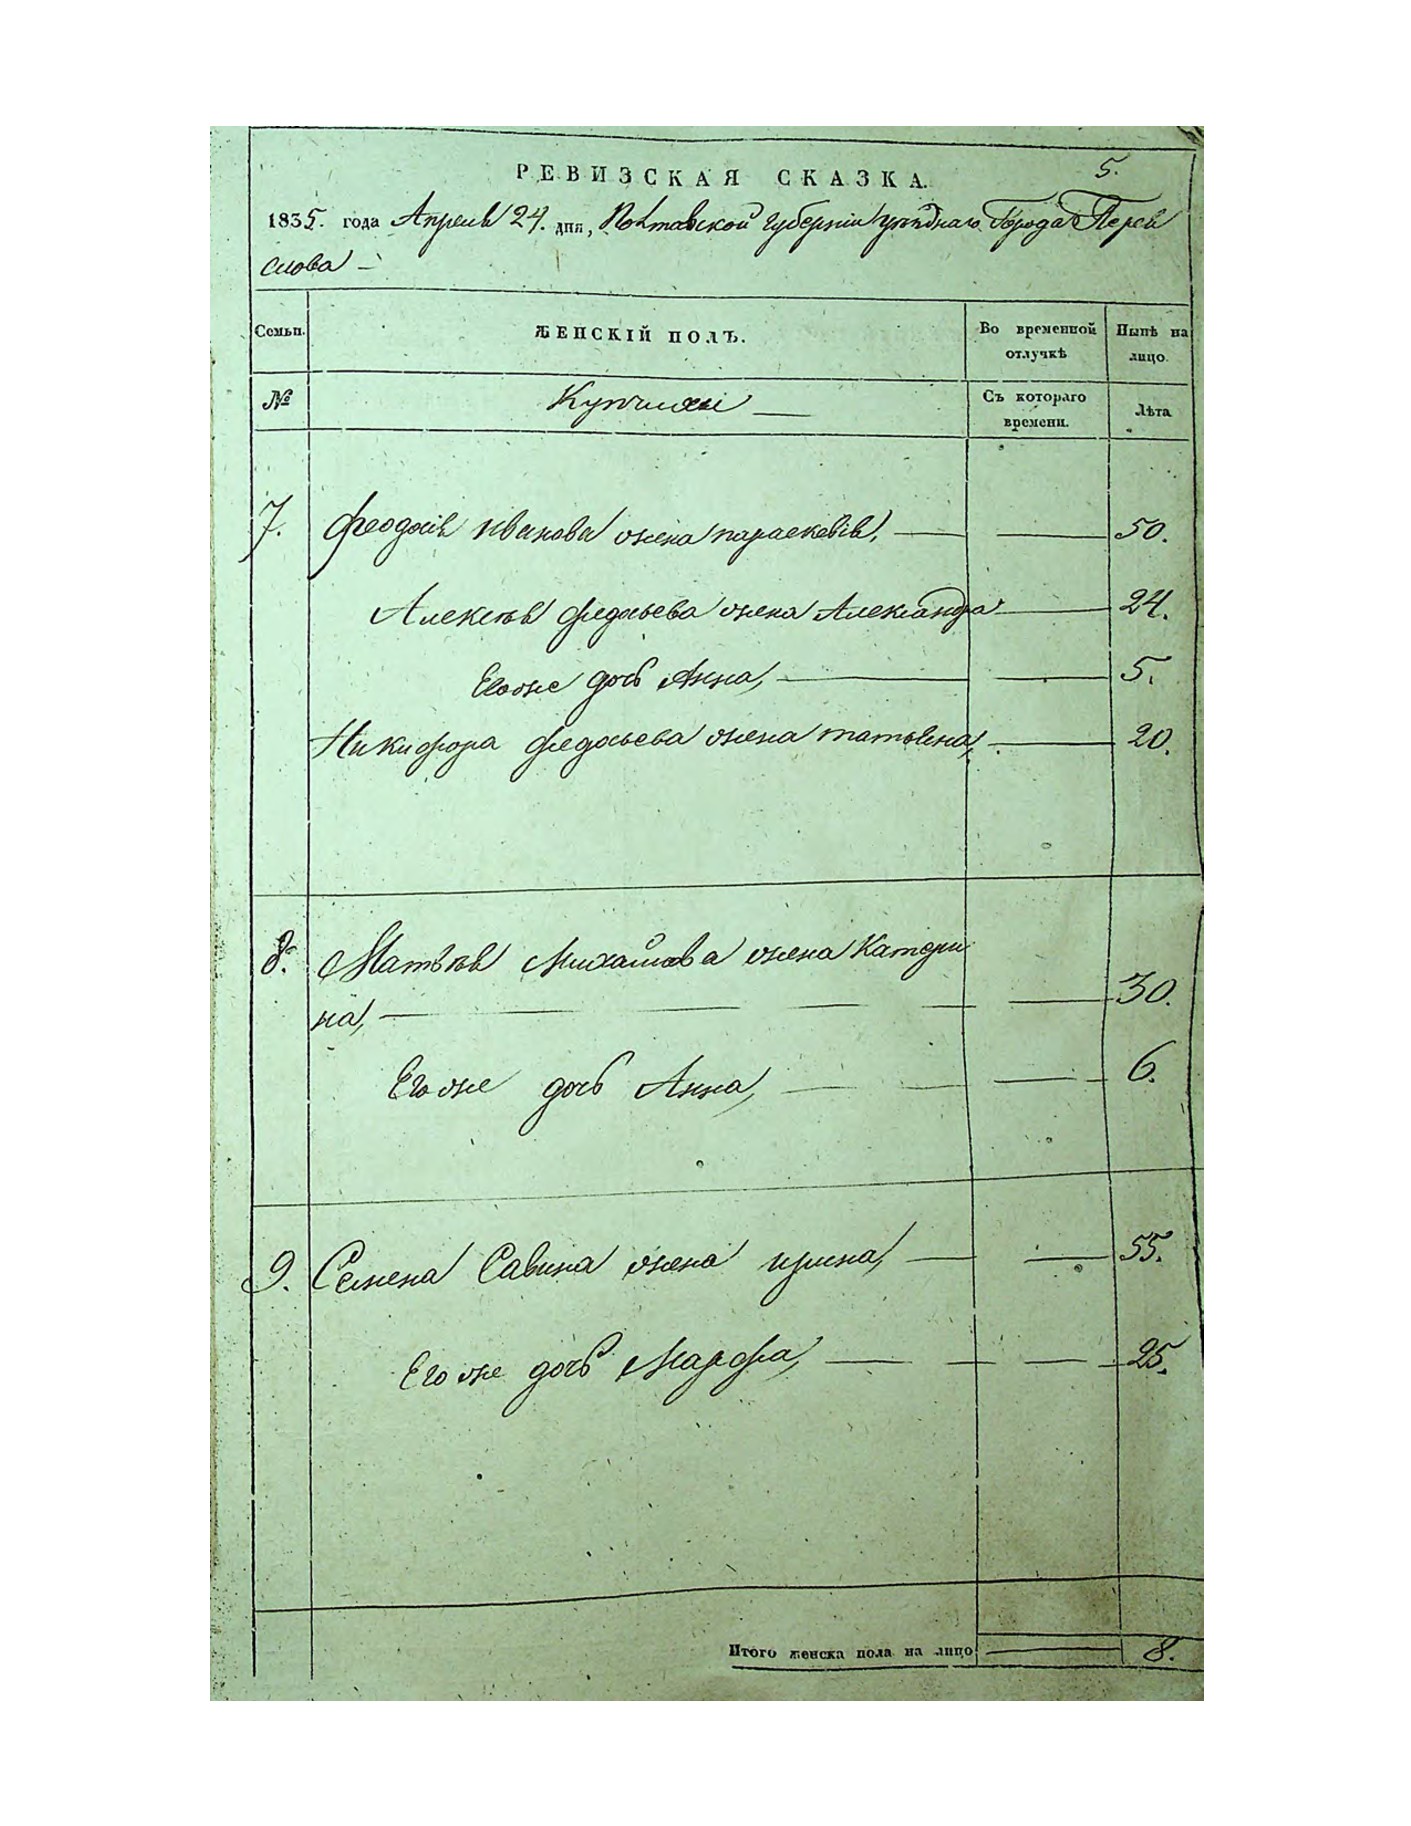 5.
РЕВИЗСКАЯ СКАЗКА.
1835. года Апреля 24. дня, Полтавской губернии уезднаго Города Перея
слова —
Семьи. ЖЕНСКІЙ ПОЛЪ. Во временной отлучкѣ Нынѣ на лицо.
№ Съ котораго времени. Лѣта
7. Феодосія Иванова жена параскевія, 50.
Алексѣя федосьева жена Александра 24.
Его же дочь Анна, 5.
Никифора федосьева жена татьяна, 20.
8. Матвѣя Михайлова жена Катери
на, 30.
Его же дочь Анна, 6.
9. Семена Савина жена ирина, 55.
Его же дочь Марфа, 25.
Итого женска пола на лицо 8.